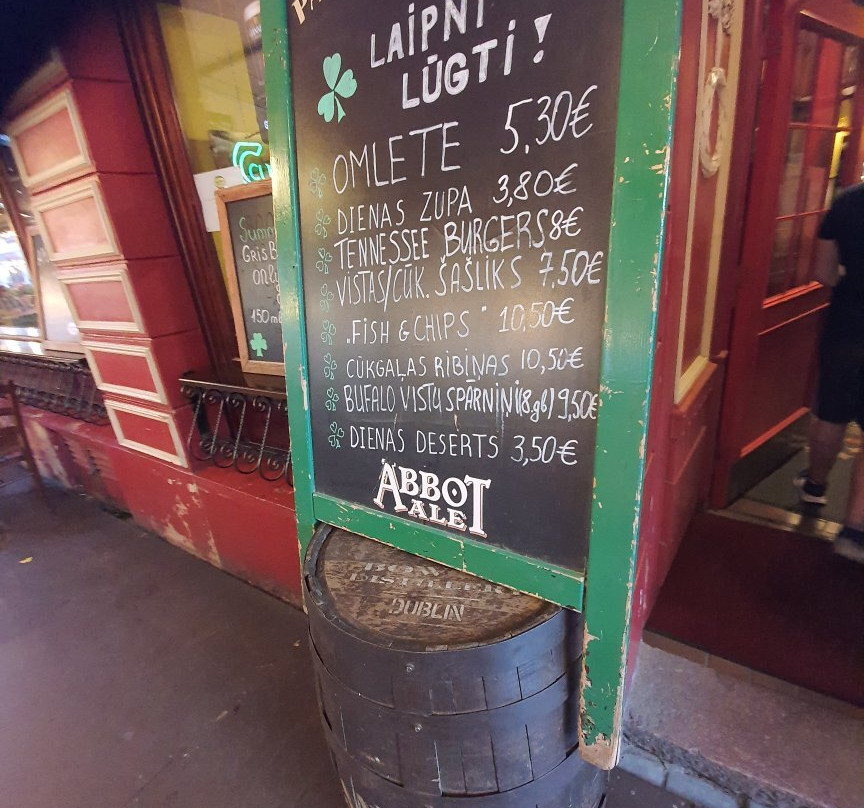 LAIPNI
LŪGTI!
OMLETE 5,30€
DIENAS ZUPA 3,80€
TENNESSEE BURGERS 8€
VISTAS/CŪK. ŠAŠLIKS 7,50€
"FISH & CHIPS" 10,50€
CŪKGAĻAS RIBIŅAS 10,50€
BUFALO VISTU SPĀRNIŅI (8.gb) 9,50€
DIENAS DESERTS 3,50€
ABBOT
ALE
DUBLIN
GRIS
only
150 m